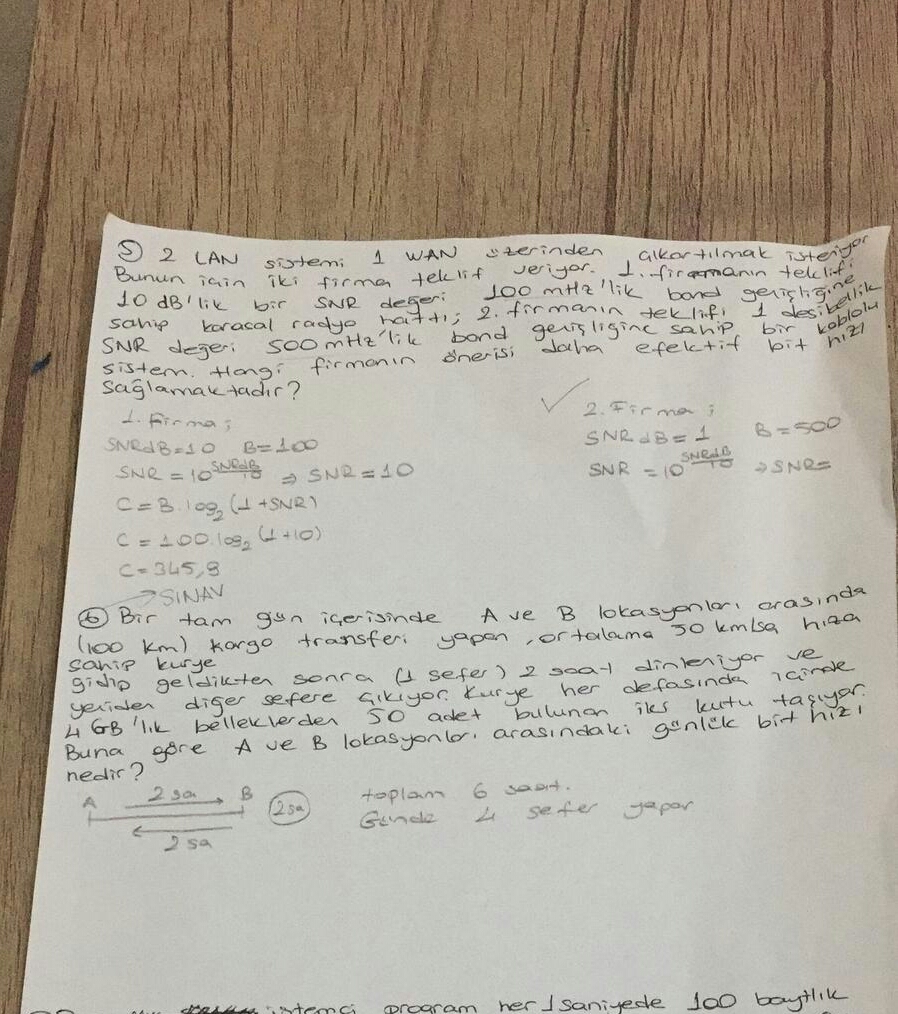 5) 2 LAN sistemi 1 WAN üzerinden alkartılmak isteniyor
Bunun için iki firma teklif veriyor. 1. firmanın teklifi
10 dB'lik bir SNR değeri 100 mHz'lik band genişliğine
sahip karasal radyo hattı; 2. firmanın teklifi 1 desibellik
SNR değeri 500 mHz'lik band genişliğine sahip bir kablolu
sistem. Hangi firmanın önerisi daha efektif bit hızı
sağlamaktadır?
1. Firma;
SNRdB=10 B=100
SNR = 10^SNRdB/10 ⇒ SNR=10
C=B.log₂(1+SNR)
C=100.log₂(1+10)
C=345,9
✓ 2. Firma;
SNRdB=1 B=500
SNR=10^SNRdB/10 ⇒SNR=
→SINAV
6) Bir tam gün içerisinde A ve B lokasyonları arasında
(100 km) kargo transferi yapan, ortalama 50 km/sa hıza
sahip kurye
gidip geldikten sonra (1 sefer) 2 saat dinleniyor ve
yeniden diğer sefere çıkıyor. Kurye her defasında içinde
4 GB'lık belleklerden 50 adet bulunan iki kutu taşıyor.
Buna göre A ve B lokasyonları arasındaki günlük bit hızı
nedir?
A 2 sa B 2sa toplam 6 saat.
2 sa Günde 4 sefer yapar
istemci program her 1 saniyede 100 baytlık